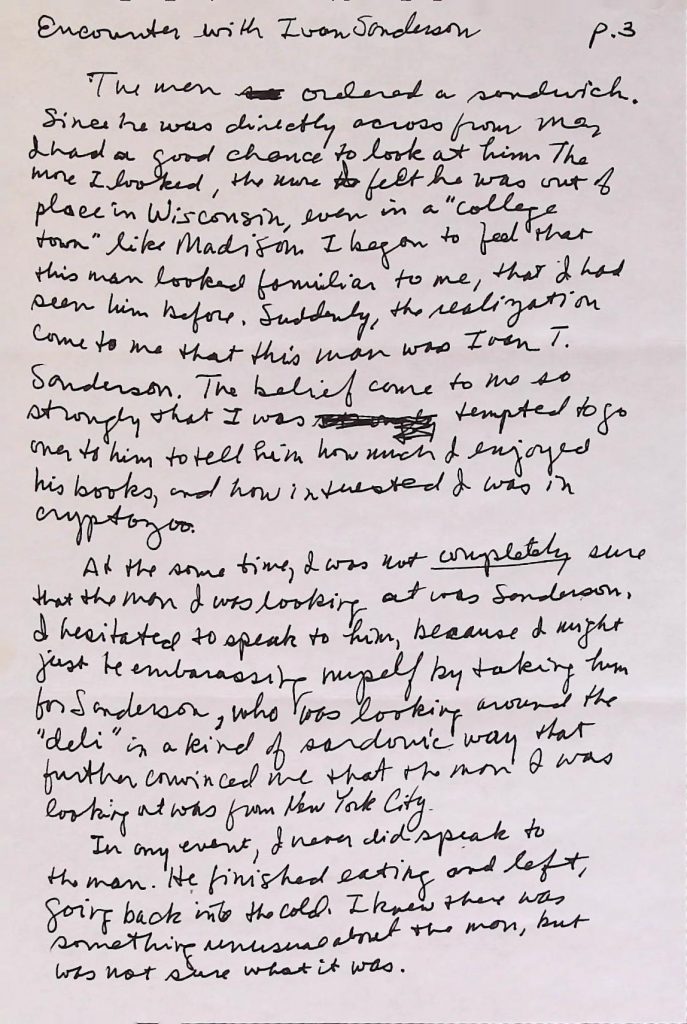 Encounter with Ivan Sanderson p.3
The man ordered a sandwich.
Since he was directly across from me,
I had a good chance to look at him. The
more I looked, the more felt he was out of
place in Wisconsin, even in a "college
town" like Madison. I began to feel that
this man looked familiar to me, that I had
seen him before. Suddenly, the realization
came to me that this man was Ivan T.
Sanderson. The belief came to me so
strongly that I was tempted to go
over to him to tell him how much I enjoyed
his books, and how interested I was in
cryptozoo.
At the same time, I was not completely sure
that the man I was looking at was Sanderson.
I hesitated to speak to him, because I might
just be embarassing myself by taking him
for Sanderson, who was looking around the
"deli" in a kind of sardonic way that
further convinced me that the man I was
looking at was from New York City.
In any event, I never did speak to
the man. He finished eating and left,
going back into the cold. I knew there was
something unusual about the man, but
was not sure what it was.